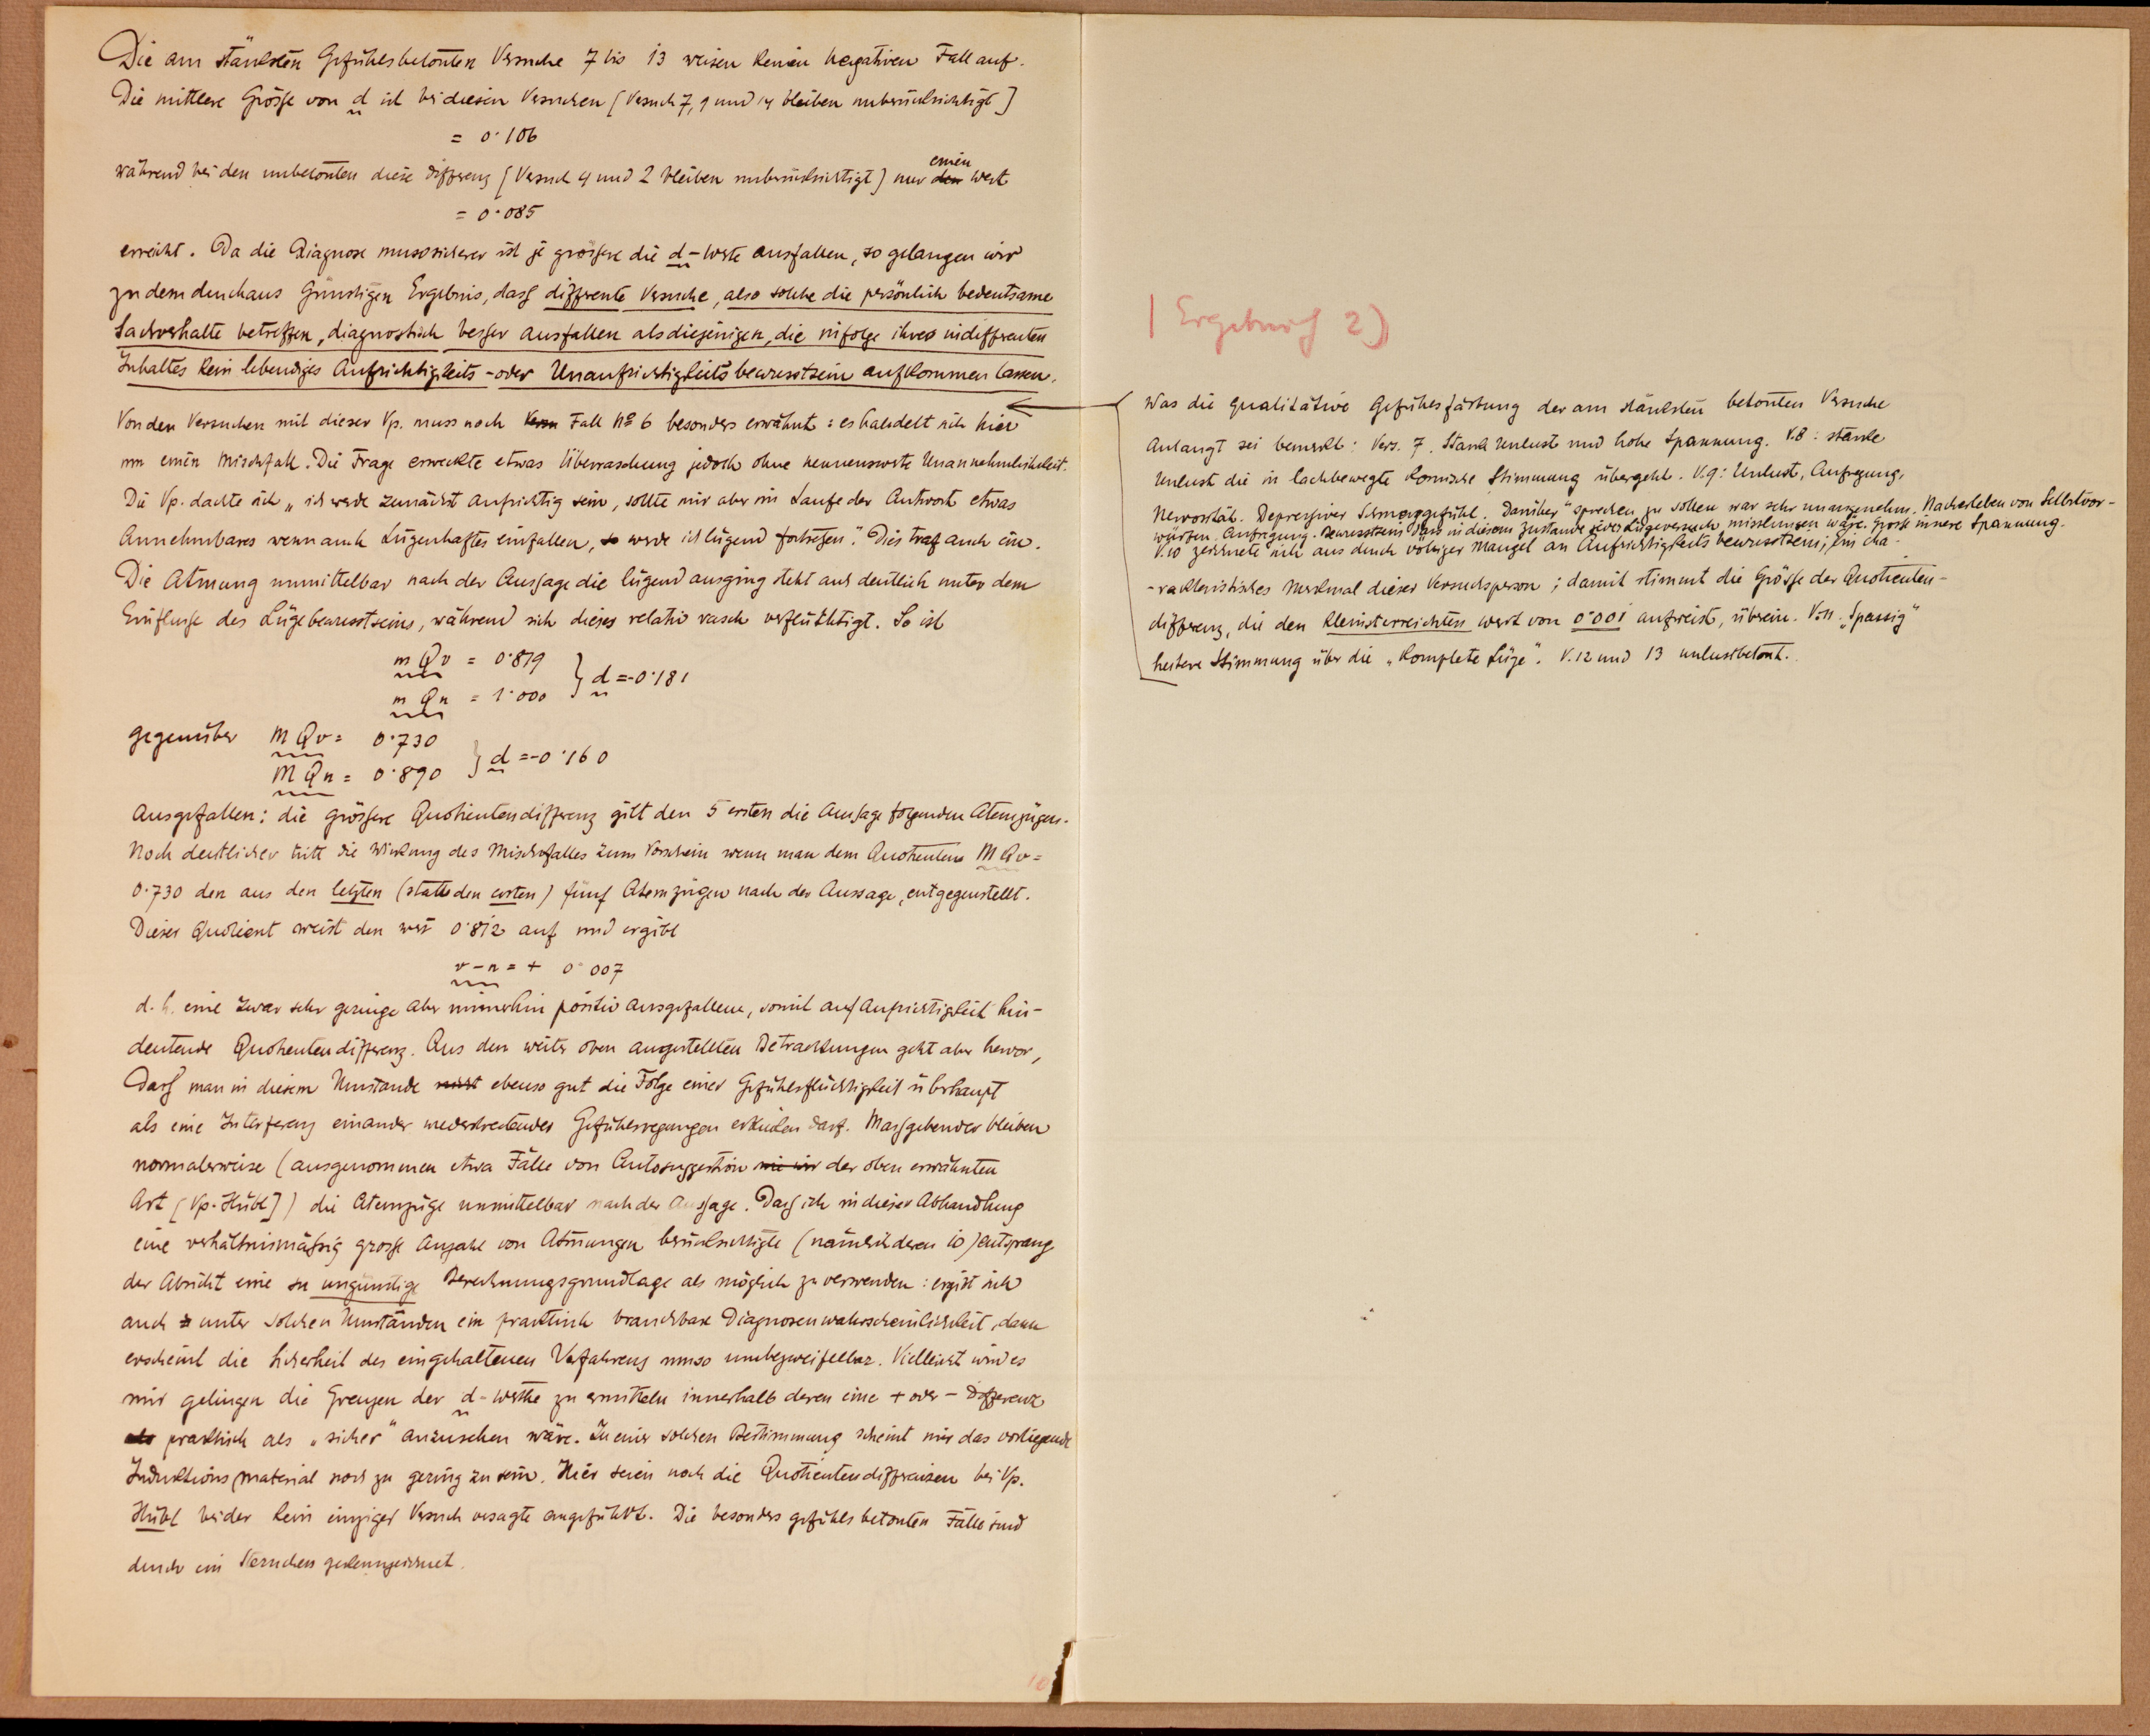 Die am stärksten Gefühlsbetonten Versuche 7 bis 13 weisen keinen negativen Fall auf.
Die mittlere Grösse von d ist bei diesen Versuchen [Versuch 7, 9 und 14 bleiben unberücksichtigt]
= 0·106
während bei den unbetonten diese Differenz [Versuch 4 und 2 bleiben unberücksichtigt] nur den einen Wert
= 0·085
erreicht. Da die Diagnose umso sicherer ist je grössere die d-Werte ausfallen, so gelangen wir
zu dem durchaus Günstigen Ergebnis, dass differente Versuche, also solche die persönlich bedeutsame
Sachverhalte betreffen, diagnostisch besser ausfallen als diejenigen, die infolge ihres indifferenten
Inhaltes kein lebendiges Aufrichtigkeits-oder Unaufrichtigkeitsbewusstsein aufkommen lassen.
Von den Versuchen mit dieser Vp. muss noch Fall No 6 besonders erwähnt: es handelt sich hier
um einen Mischfall. Die Frage erweckte etwas Überraschung jedoch ohne nennenswerte Unannehmlichkeit.
Die Vp. dachte sich „ich werde zunächst aufrichtig sein, sollte mir aber im Laufe der Antwort etwas
Annehmbares wenn auch Lügenhaftes einfallen, so werde ich lügend fortsetzen". Dies traf auch ein.
Die Atmung unmittelbar nach der Aussage die lügend ausging steht auch deutlich unter dem
Einflusse des Lügebewusstseins, während sich dieses relativ rasch verflüchtigt. So ist
m Qv = 0·819
m Qn = 1·000 } d = -0·181
gegenüber M Qv = 0·730
M Qn = 0·890 } d = -0·160
Ausgefallen: die grössere Quotientendifferenz gilt den 5 ersten die Aussage folgenden Atemzügen.
Noch deutlicher tritt die Wirkung des Mischfalles zum Vorschein wenn man dem Quotienten M Qv =
0·730 den aus den letzten (statt den ersten) fünf Atemzügen nach der Aussage, entgegenstellt.
Dieser Quotient weist den Wert 0·812 auf und ergibt
v - n = + 0·007
d. h. eine zwar sehr geringe aber immerhin positiv ausgefallene, somit auf Aufrichtigkeit hin-
deutende Quotientendifferenz. Aus den weiter oben angestellten Betrachtungen geht aber hervor,
Dass man in diesem Umstande nicht ebenso gut die Folge einer Gefühlsflüchtigkeit überhaupt
als eine Interferenz einander widerstreitender Gefühlsregungen erblicken darf. Massgebender bleiben
normalerweise (ausgenommen etwa Fälle von Autosuggestion der oben erwähnten
Art [Vp. Hübl]) die Atemzüge unmittelbar nach der Aussage. Dass ich in dieser Abhandlung
eine verhältnismässig grosse Anzahl von Atmungen berücksichtigte (nämlich deren 10) entsprang
der Absicht eine so ungünstige Berechnungsgrundlage als möglich zu verwenden: ergibt sich
auch unter solchen Umständen ein praktisch brauchbare Diagnosenwahrscheinlichkeit, dann
erscheint die Sicherheit des eingehaltenen Verfahrens umso unbezweifelbar. Vielleicht wird es
mir gelingen die Grenzen der d-Werthe zu ermitteln innerhalb deren eine + oder - Differenz
als praktisch als „sicher" anzusehen wäre. Zu einer solchen Bestimmung scheint mir das vorliegende
Induktionsmaterial noch zu gering zu sein. Hier seien noch die Quotientendifferenzen bei Vp.
Hübl bei der kein einziger Versuch versagte angeführt. Die besonders gefühlsbetonten Fälle sind
durch ein Sternchen gekennzeichnet.
10
| Ergebnis 2)
Was die qualitative Gefühlsfärbung der am stärksten betonten Versuche
anlangt sei bemerkt: Vers. 7. Stark Unlust und hohe Spannung. V.8: starke
Unlust die in lachbewegte komische Stimmung übergeht. V.9: Unlust, Aufregung,
Nervosität. Depressives Schmerzgefühl. „Darüber" sprechen zu sollen war sehr unangenehm. Nacherleben von Selbstvor-
würfen. Aufregung. Bewusstsein dass in diesem Zustande jeder Lügeversuch misslungen wäre. Grosse innere Spannung.
V.10 zeichnete sich aus durch völligen Mangel an Aufrichtigkeitsbewusstsein; ein cha-
-rakteristisches Merkmal dieser Versuchsperson; damit stimmt die Grösse der Quotienten-
differenz, die den kleinsterreichten Wert von 0·001 aufweist, überein. V.11. „Spassig"
heitere Stimmung über die „komplete Lüge". V.12 und 13 unlustbetont.